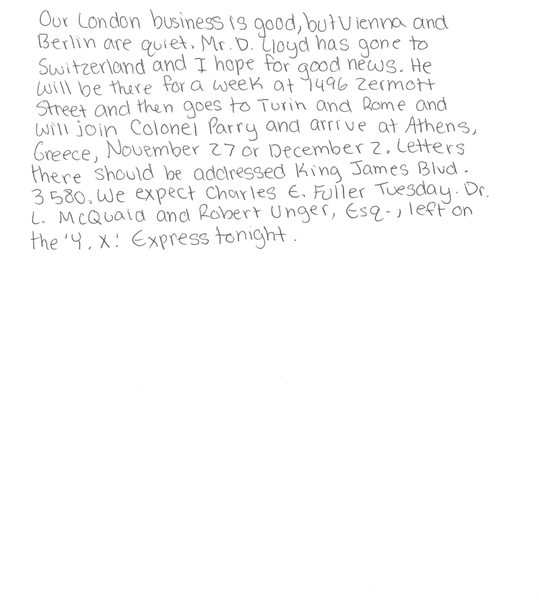 Our London business is good, but Vienna and
Berlin are quiet. Mr. D. Lloyd has gone to
Switzerland and I hope for good news. He
will be there for a week at 7496 Zermott
Street and then goes to Turin and Rome and
will join Colonel Parry and arrive at Athens,
Greece, November 27 or December 2. Letters
there should be addressed King James Blvd.
3580. We expect Charles E. Fuller Tuesday. Dr.
L. McQuaid and Robert Unger, Esq., left on
the 'Y. X.' Express tonight.